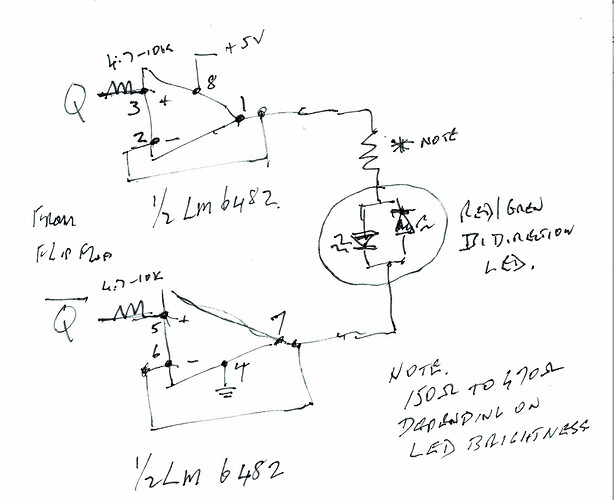 4.7-10K
+5V
Q
3
+
8
1
2
-
* NOTE
1/2 LM6482.
FROM
FLIP FLOP
RED/GREN
BIDIRECTION
LED.
4.7-10K
Q
5
+
7
6
-
4
NOTE.
150Ω TO 470Ω
DEPENDING ON
LED BRIGHTNESS
1/2 LM 6482